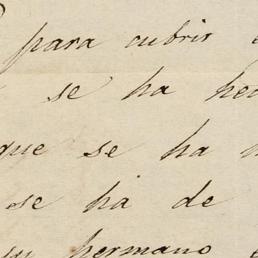 para cubrir
se ha
que se ha
se ha de
su hermano